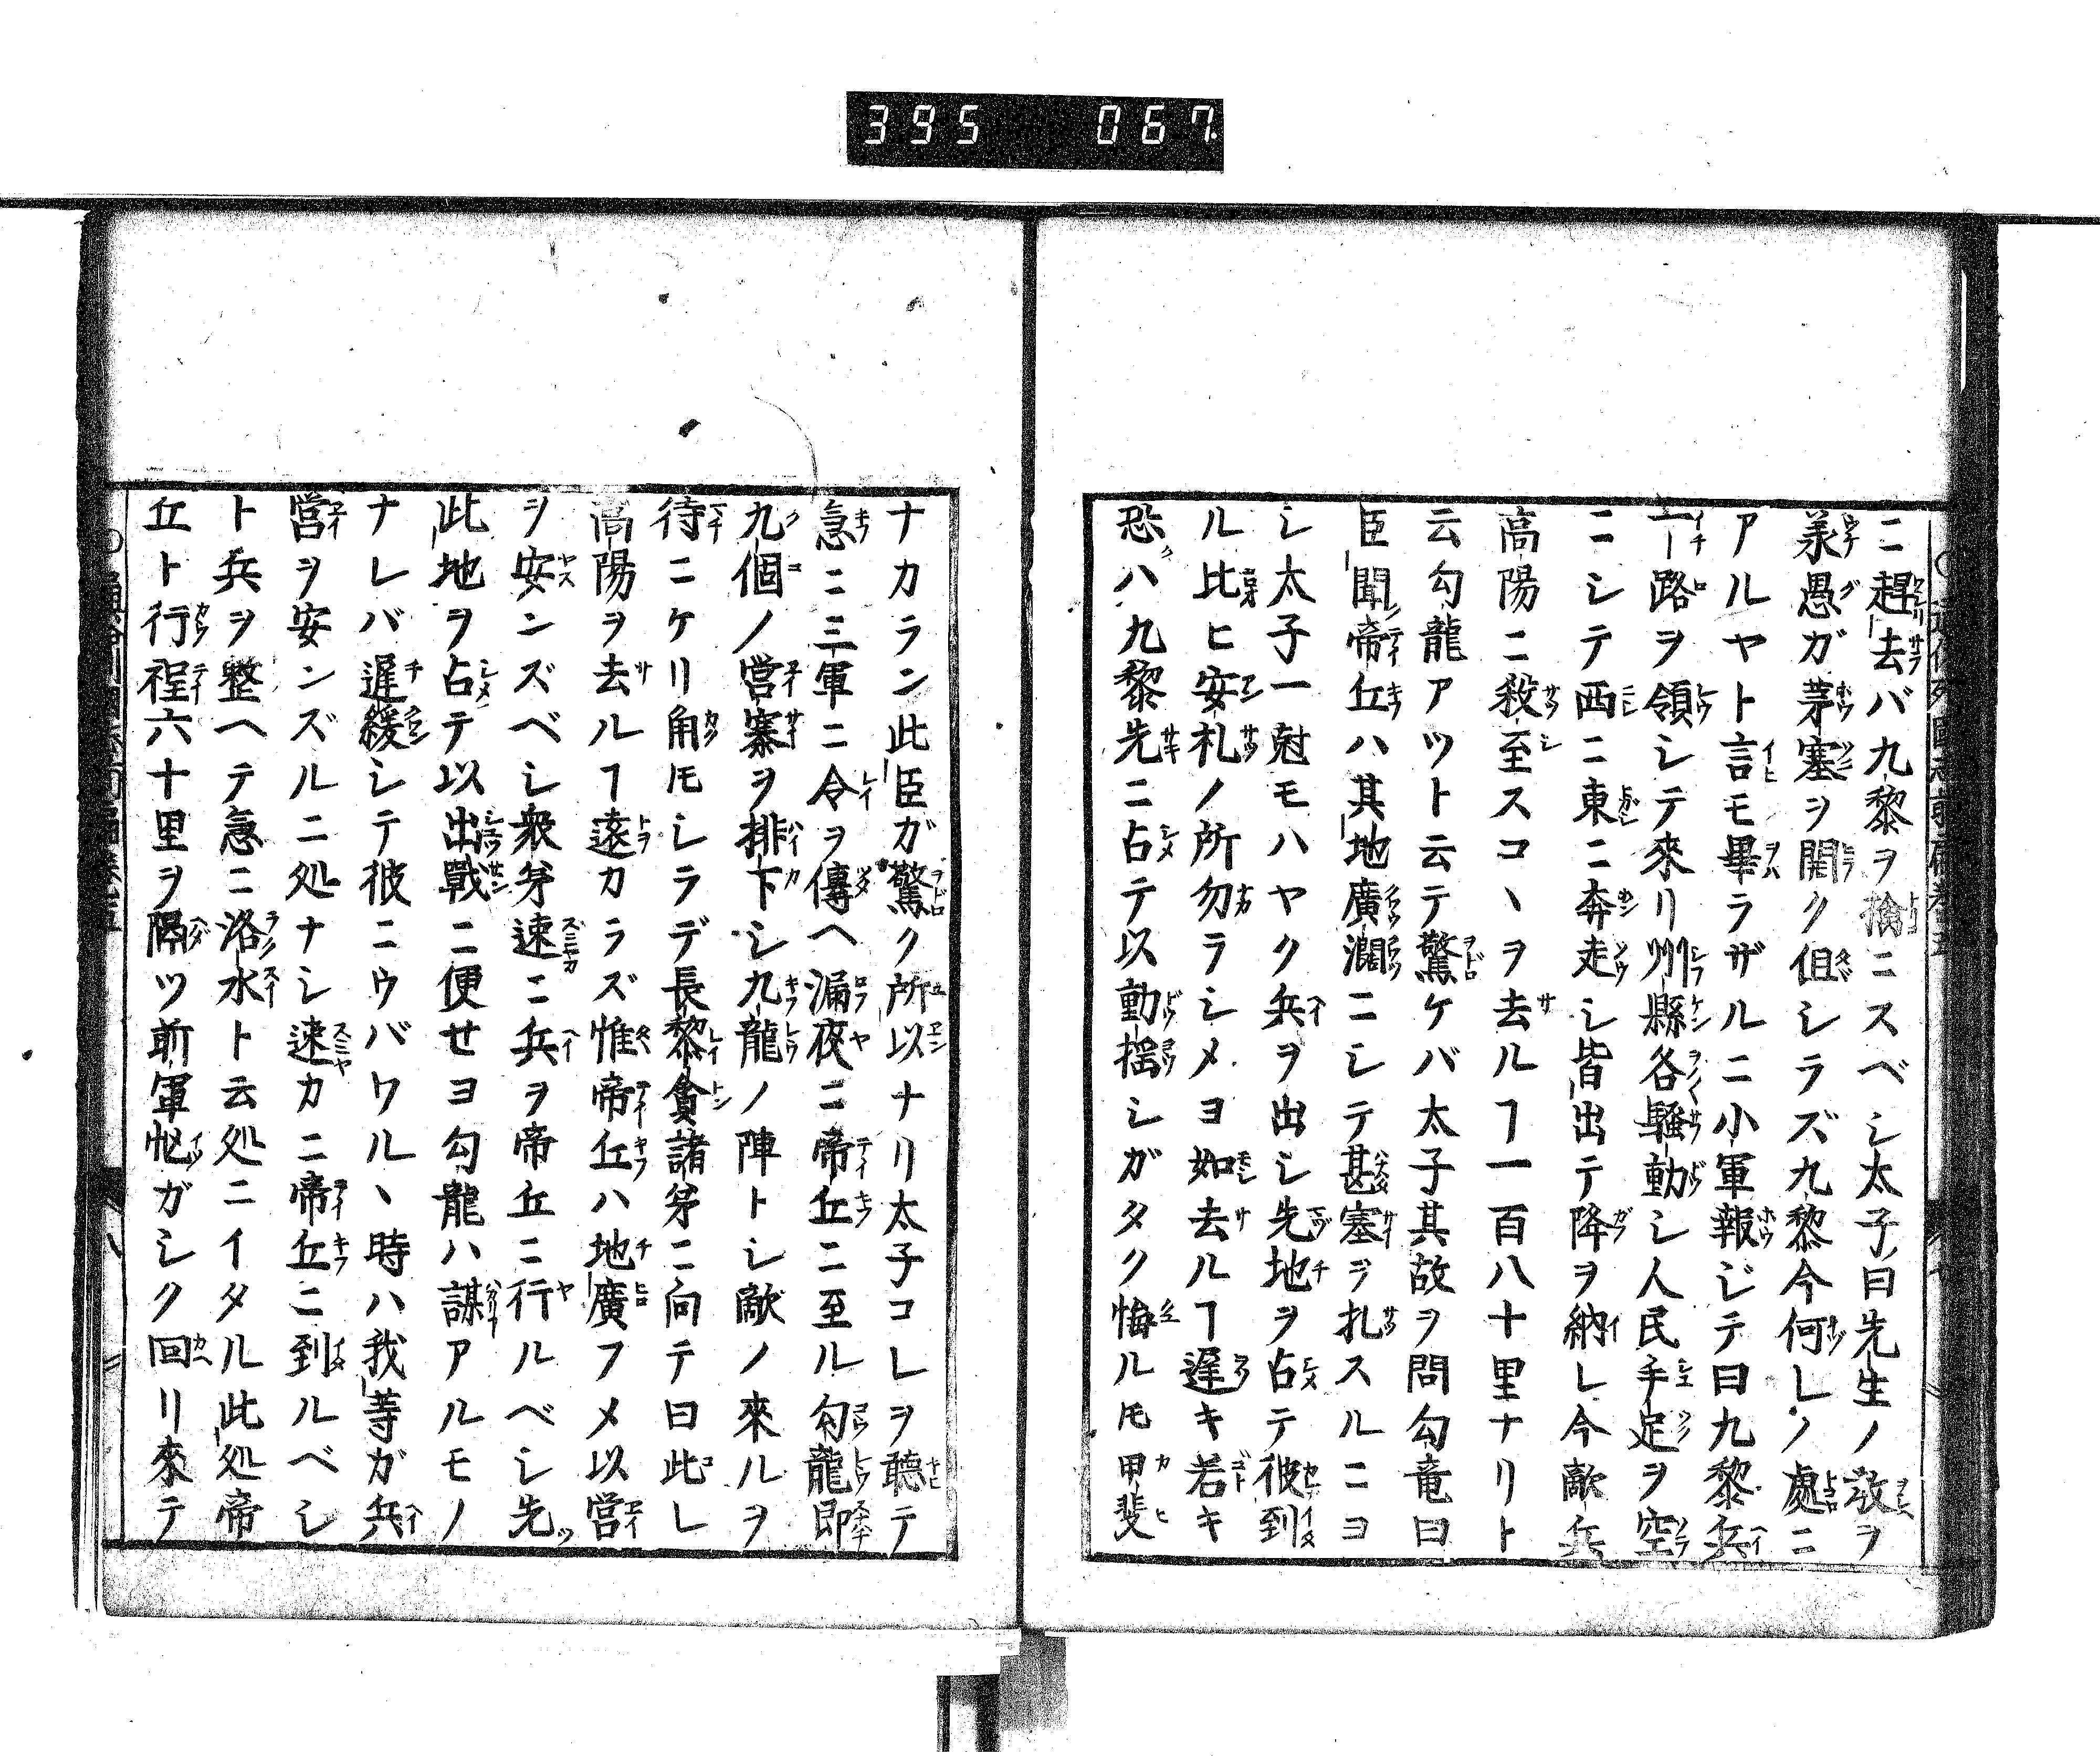 395 067
ニ趕去バ九黎ヲ擒ニスベシ太子曰先生ノ敎ヲ
羕愚ガ茅塞ヲ開ク但シラズ九黎今何レノ處ニ
アルヤト言モ畢ラザルニ小軍報ジテ曰九黎兵
一路ヲ領シテ來リ州縣各騷動シ人民手足ヲ空
ニシテ西ニ東ニ奔走シ皆出テ降ヲ納レ今敵兵
高陽ニ殺至スコヽヲ去ルヿ一百八十里ナリト
云勾龍アツト云テ驚ケバ太子其故ヲ問勾竜曰
臣聞帝丘ハ其地廣濶ニシテ甚塞ヲ扎スルニヨ
シ太子一尅モハヤク兵ヲ出シ先地ヲ占テ彼到
ル比ヒ安札ノ所勿ラシメヨ如去ルヿ遅キ若キ
恐ハ九黎先ニ占テ以動揺シガタク悔ルモ甲斐
ナカラン此臣ガ驚ク所以ナリ太子コレヲ聽テ
急ニ三軍ニ令ヲ傳ヘ漏夜ニ帝丘ニ至ル勾龍即
九個ノ営寨ヲ排下シ九龍ノ陣トシ敵ノ來ルヲ
待ニケリ角モシラデ長黎貪諸弟ニ向テ曰此レ
高陽ヲ去ルヿ遠カラズ惟帝丘ハ地廣フメ以営
ヲ安ンズベシ衆弟速ニ兵ヲ帝丘ニ行ルベシ先
此地ヲ占テ以出戰ニ便セヨ勾龍ハ謀アルモノ
ナレバ遅緩シテ彼ニウバワルヽ時ハ我等ガ兵
営ヲ安ンズルニ処ナシ速カニ帝丘ニ到ルベシ
ト兵ヲ整ヘテ急ニ洛水ト云処ニイタル此処帝
丘ト行程六十里ヲ隔ツ前軍忙ガシク回リ來テ